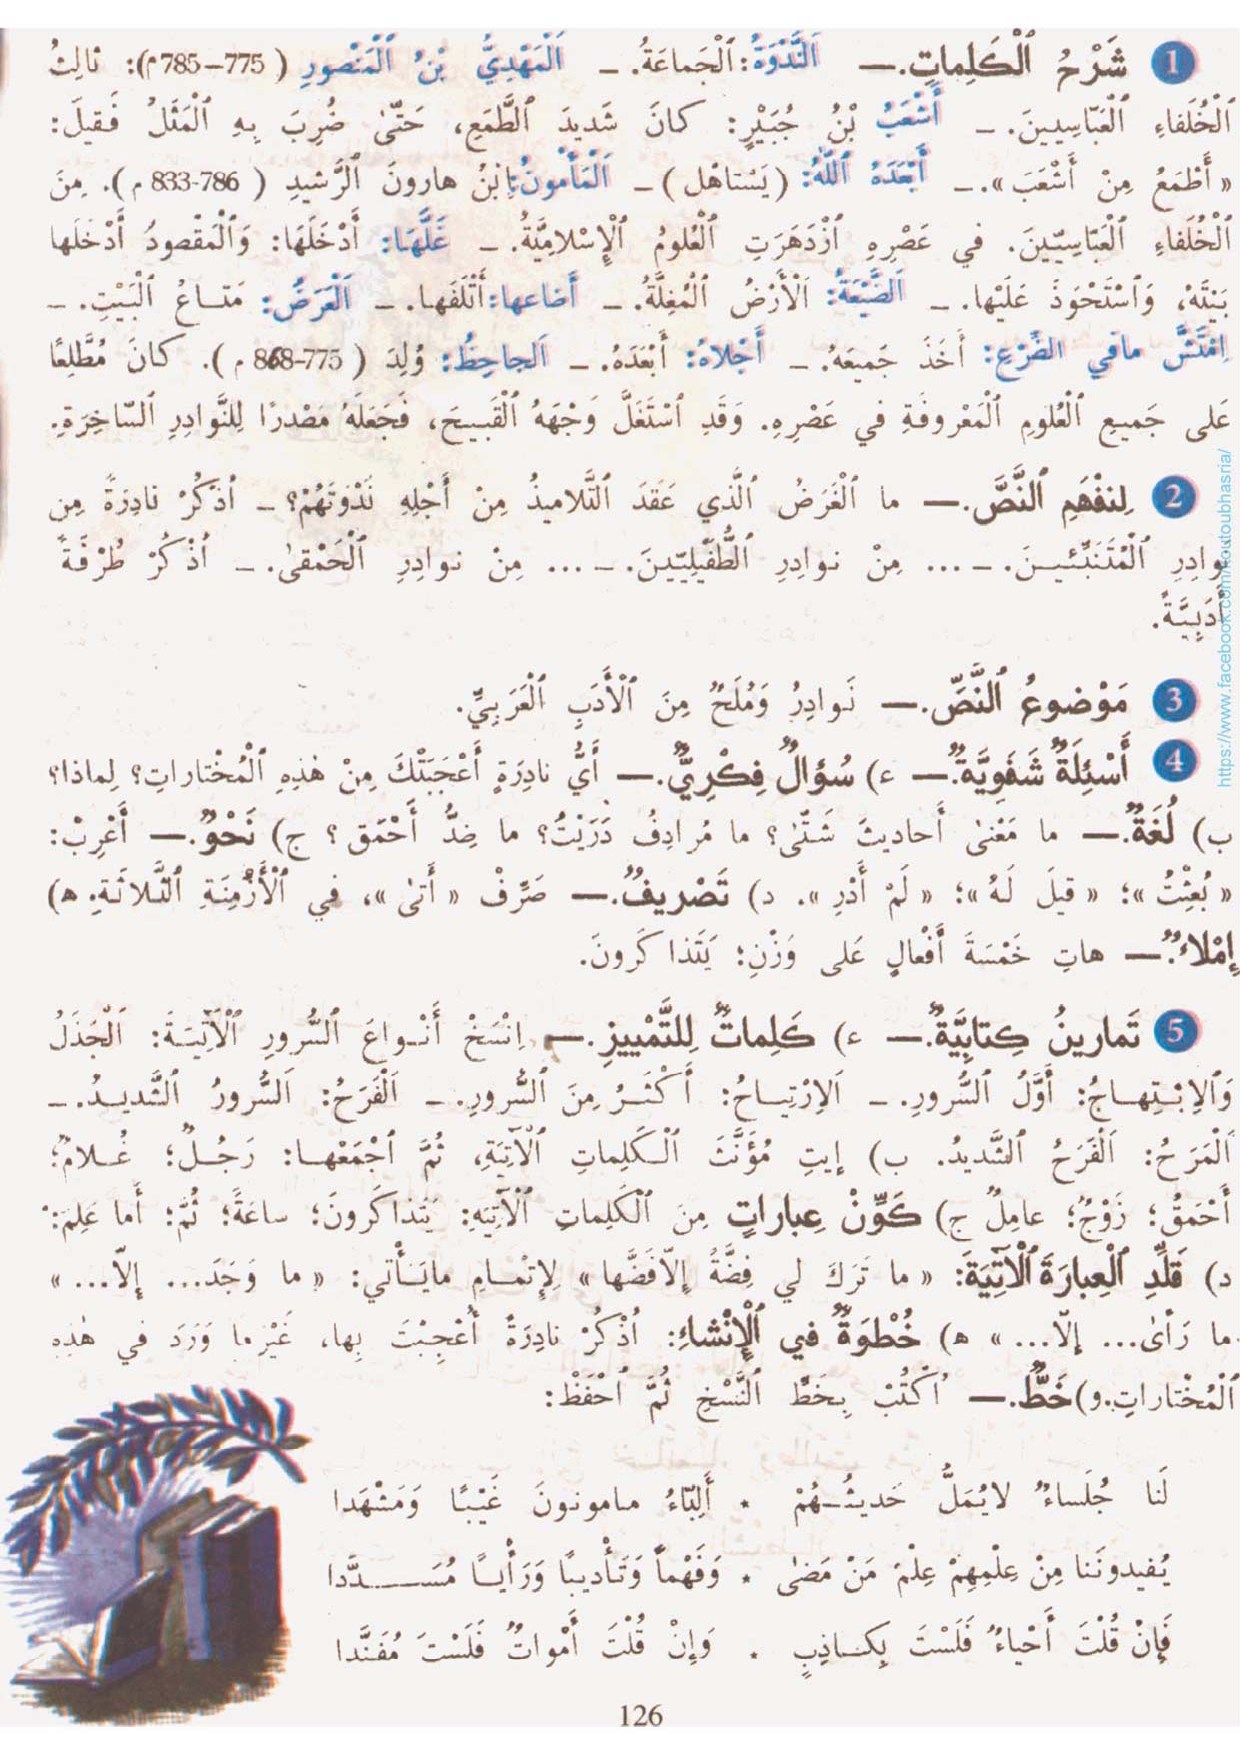 1 شَرْحُ ٱلْكَلِماتِ.— ٱلنَّدْوَةُ: ٱلْجَماعَةُ. – ٱلْمَهْدِيُّ بْنُ ٱلْمَنْصورِ ( 775–785م): ثالِثُ
ٱلْخُلَفاءِ ٱلْعَبّاسِيينَ. – أَشْعَبُ بْنُ جُبَيْرٍ: كانَ شَديدَ ٱلطَّمَعِ، حَتّىٰ ضُرِبَ بِهِ ٱلْمَثَلُ فَقيلَ:
« أَطْمَعُ مِنْ أَشْعَبَ ». – أَبْعَدَهُ ٱللّٰهُ: ( يَسْتاهْل ) – ٱلْمَأْمونُ: اِبْنُ هارونَ ٱلرَّشيدِ ( 786-833 م ). مِنَ
ٱلْخُلَفاءِ ٱلْعَبّاسِيّينَ. في عَصْرِهِ ٱزْدَهَرَتِ ٱلْعُلومُ ٱلْإِسْلامِيَّةُ. – غَلَّهَا: أَدْخَلَهَا: وَٱلْمَقْصودُ أَدْخَلَها
بَيْتَهُ، وَٱسْتَحْوَذَ عَلَيْها. – ٱلضَّيْعَةُ: ٱلْأَرْضُ ٱلْمُغِلَّةُ. – أَضاعها: أَتْلَفَها. – ٱلْعَرَضُ: مَتاعُ ٱلْبَيْتِ. –
اِمْتَشَّ مافي الضَّرْعِ: أَخَذَ جَميعَهُ. – أَجْلاهُ: أَبْعَدَهُ. – الجاحِظُ: وُلِدَ ( 775–868 م ). كانَ مُطَّلِعًا
عَلى جَميعِ ٱلْعُلومِ ٱلْمَعْروفَةِ في عَصْرِهِ. وَقَدِ ٱسْتَغَلَّ وَجْهَهُ ٱلْقَبيحَ، فَجَعَلَهُ مَصْدرًا لِلنَّوادِرِ ٱلسّاخِرَةِ.
2 لِنفْهَمِ ٱلنَّصَّ.— ما ٱلْغَرَضُ ٱلَّذي عَقَدَ ٱلتَّلاميذُ مِنْ أَجْلِهِ نَدْوَتَهُمْ؟ – اُذْكُرْ نادِرَةً مِن
نوادِرِ ٱلْمُتَنَبِّئيـنَ. – ... مِنْ نوادِرِ ٱلطُّفَيْلِيّيـنَ. – ... مِنْ نوادِرِ ٱلْحَمْقىٰ. – اُذْكُرْ طُرْفَةً
أَدَبِيَّةً.
3 مَوْضوعُ ٱلنَّصِّ.— نَوادِرُ وَمُلَحٌ مِنَ ٱلْأَدَبِ ٱلْعَرَبِيِّ.
4 أَسْئِلَةٌ شَفَوِيَّةٌ.— ء) سُؤالٌ فِكْرِيٌّ.— أَيُّ نادِرَةٍ أَعْجَبَتْكَ مِنْ هٰذِهِ ٱلْمُخْتاراتِ؟ لِماذا؟
ب) لُغَةٌ.— ما مَعْنىٰ أَحاديثَ شَتّىٰ؟ ما مُرادِفُ دَرَيْتُ؟ ما ضِدُّ أَحْمَق ؟ ج) نَحْوٌ.— أَعْرِبْ:
« بُعِثْتُ »؛ « قيلَ لَهُ »؛ « لَمْ أَدْرِ ». د) تَصْريفٌ.— صَرِّفْ « أَتىٰ »، في ٱلْأَزْمِنَةِ ٱلثَّلاثَةِ. ه)
إِمْلاءٌ.— هاتِ خَمْسَةَ أَفْعالٍ عَلى وَزْنِ: يَتَذاكَرونَ.
5 تَمارينُ كِتابِيَّةٌ.— ء) كَلِماتٌ لِلتَّمْييزِ.— اِنْسَخْ أَنْـواعَ ٱلسُّرورِ ٱلْآتِيَـةَ: ٱلْجَذَلُ
وَٱلاِبْـتِهـاجُ: أَوَّلُ ٱلسُّرورِ. – اَلاِرْتِيـاحُ: أَكْثَـرُ مِنَ ٱلسُّرورِ. – اَلْفَرَحُ: اَلسُّرورُ ٱلشَّديـدُ. –
اَلْمَرَحُ: اَلْفَرَحُ ٱلشَّديدُ. ب) إيتِ مُؤَنَّثَ ٱلْكَلِماتِ ٱلْآتِيَةِ، ثُمَّ ٱجْمَعْهـا: رَجُـلٌ؛ غُـلامٌ؛
أَحْمَقُ؛ زَوْجٌ؛ عامِلٌ ج) كَوِّنْ عِباراتٍ مِنَ ٱلْكَلِماتِ ٱلْآتِيَةِ: يَتَذاكَرونَ؛ ساعَةً؛ ثُمَّ؛ أَما عَلِمَ:
د) قَلِّدِ ٱلْعِبارَةَ ٱلْآتِيَةَ: « ما تَرَكَ لي فِضَّةً إِلاّفَضَّها » لِإتْمـامِ مايَـأْتي: « ما وَجَدَ... إِلاّ... »
ما رَأىٰ... إِلاّ... » ه) خُطْوَةٌ في ٱلْإِنْشاءِ: اُذْكُرْ نادِرَةً أُعْجِبْتَ بِها، غَيْرما وَرَدَ في هٰذِهِ
ٱلْمُخْتاراتِ.و)خَطٌّ.— اُكْتُبْ بِخَطِّ ٱلنَّسْخِ ثُمَّ ٱحْفَظْ:
لَنا جُلَساءٌ لايُمَلُّ حَديثُـهُمْ • أَلِبّاءُ مـامونونَ غَيْبًا وَمَشْهَدا
يُفيدونَنا مِنْ عِلْمِهِمْ عِلْمَ مَنْ مَضىٰ • وَفَهْماً وَتَأْديبًا وَرَأْيـاً مُسَـــدَّدا
فَإِنْ قُلْتَ أَحْياءٌ فَلَسْتَ بِكـاذِبٍ • وَإِنْ قُلْتَ أَمْواتٌ فَلَسْتَ مُفَنَّدا
126
https://www.facebook.com/koutoubhasria/